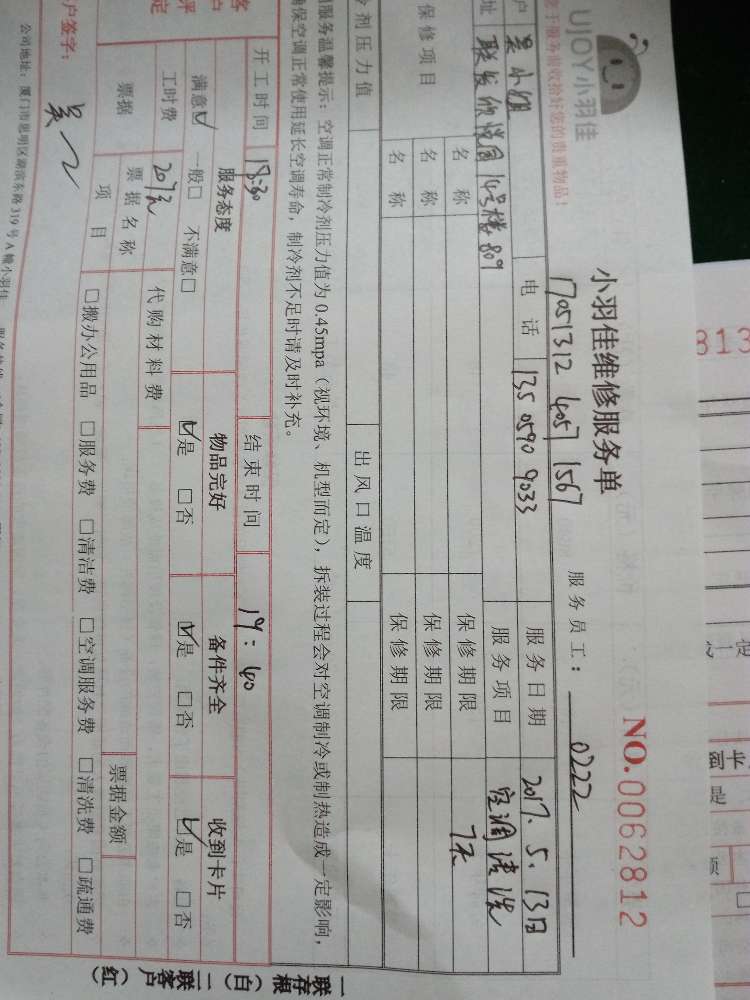 UJOY小羽佳
于服务前收拾好您的贵重物品！
小羽佳维修服务单
NO.0062812
17051312 4057 1567
服务员工： 0222
户 吴小姐 电话 135 0590 9033 服务日期 2017.5.13日
址 联发欣悦园14号楼809 服务项目 空调清洗
保修项目
名称 保修期限 7天
名称 保修期限
名称 保修期限
冷剂压力值 出风口温度
服务温馨提示：空调正常制冷剂压力值为0.45mpa（视环境、机型而定），拆装过程会对空调制冷或制热造成一定影响，
确保空调正常使用延长空调寿命，制冷剂不足时请及时补充。
开工时间 18:30 结束时间 19:40
客户评定
服务态度 物品完好 备件齐全 收到卡片
满意☑ 一般□ 不满意□ ☑是 □否 ☑是 □否 ☑是 □否
工时费 207元 代购材料费
票据 票据名称 票据金额
项目 □搬办公用品 □服务费 □清洁费 □空调服务费 □清洗费 □疏通费
户签字：
公司地址：厦门市思明区湖滨东路319号A幢小羽佳
一联存根（白） 二联客户（红）
813
是